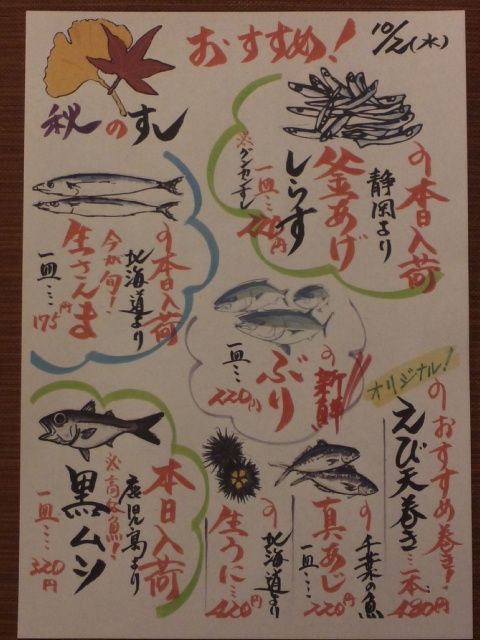 おすすめ!
10/2(水)
秋のすし
の本日入荷
静岡より
釜あげ
しらす
一皿…
の本日入荷
北海道より
今が旬!
生さんま
一皿… 175円
の新鮮!!
ぶり
一皿… 220円
オリジナル!
のおすすめ巻き!
えび天巻き…
一本 480円
の千葉の魚
真あじ
一皿… 220円
の北海道より
生うに… 420円
本日入荷
鹿児島より
※高級魚!
黒ムツ
一皿… 320円